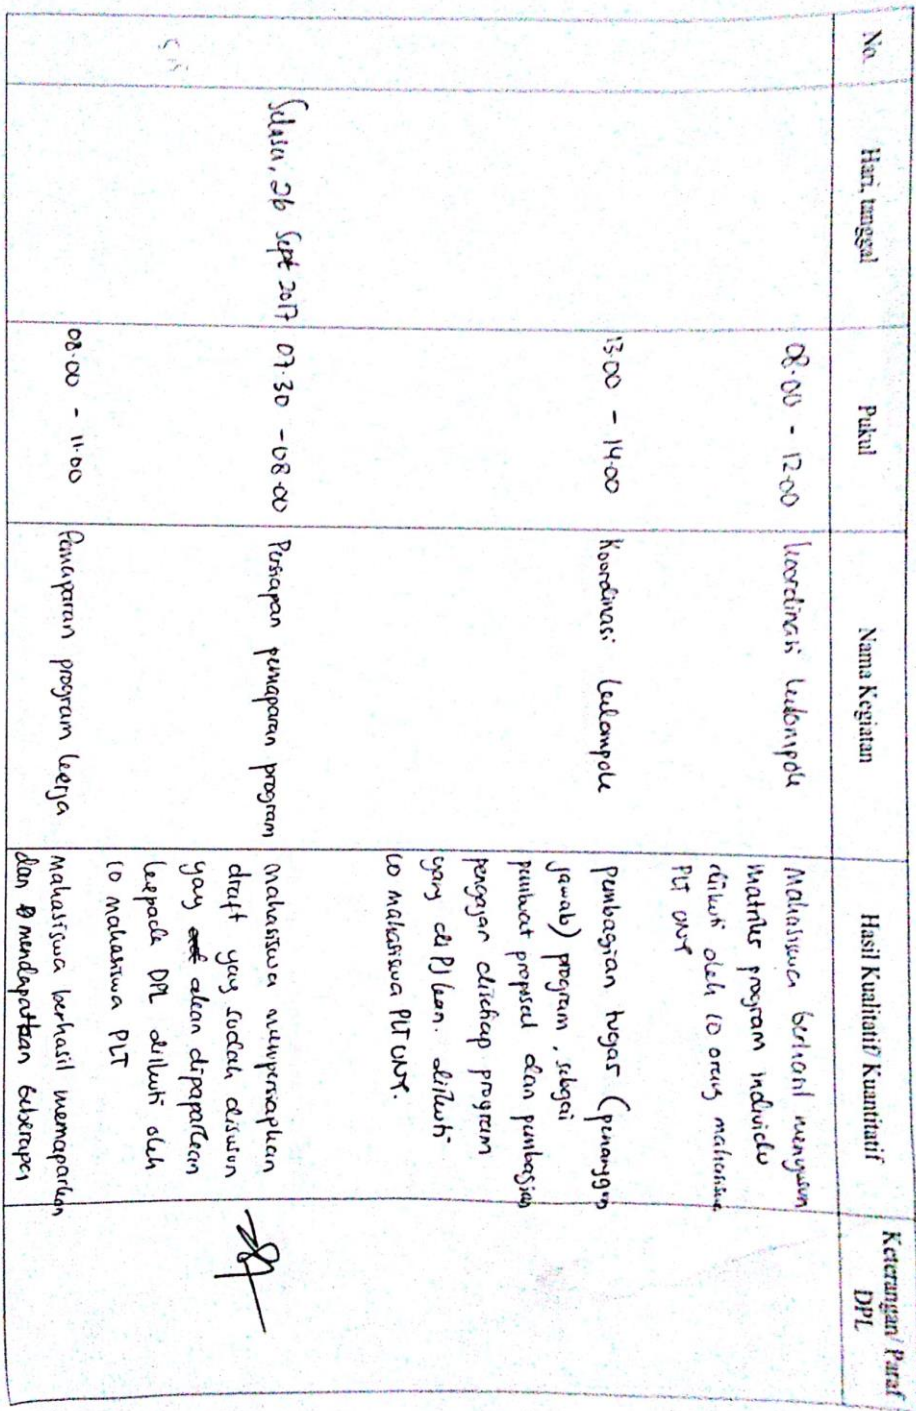 No. Hari, tanggal Pukul Nama Kegiatan Hasil Kualitatif/ Kuantitatif Keterangan/ Paraf
DPL
08.00 - 12.00 Koordinasi kelompok Mahasiswa berhasil menyusun
matriks program individu
diikuti oleh 10 orang mahasiswa
PLT UNY
13.00 - 14.00 Koordinasi kelompok Pembagian tugas (penanggung
jawab) program, sebgai
pembuat proposal dan pembagian
pengajar ditiap program
yang di PJ kan. diikuti
10 mahasiswa PLT UNY.
Selasa, 26 Sept 2017 07.30 - 08.00 Persiapan pemaparan program Mahasiswa mempersiapkan
draft yag sudah disusun
yag akan dipaparkan
kepada DPL diikuti oleh
10 mahasiswa PLT
08.00 - 11.00 Pemaparan program kerja Mahasiswa berhasil memaparkan
dan mendapatkan beberapa